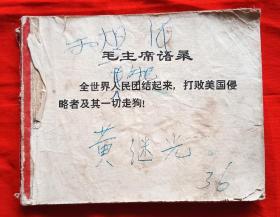 毛主席语录
全世界人民团结起来，打败美国侵
略者及其一切走狗！
黄继光
36